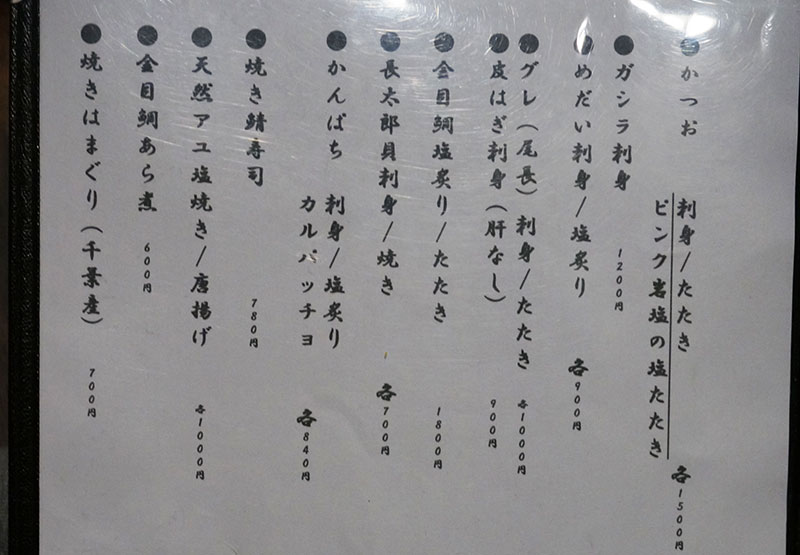 ●かつお 刺身/たたき
ピンク岩塩の塩たたき 各1500円
●ガシラ刺身 1200円
●めだい刺身/塩炙り 各900円
●グレ(尾長)刺身/たたき 各1000円
●皮はぎ刺身(肝なし) 900円
●金目鯛塩炙り/たたき 1800円
●長太郎貝刺身/焼き 各700円
●かんぱち 刺身/塩炙り
カルパッチョ 各840円
●焼き鯖寿司 780円
●天然アユ塩焼き/唐揚げ 各1000円
●金目鯛あら煮 600円
●焼きはまぐり(千葉産) 700円